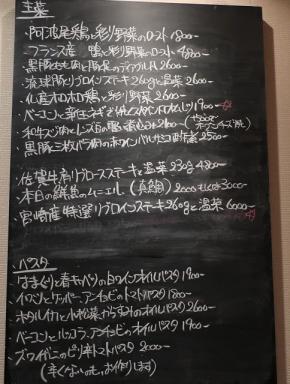 主菜
・阿波尾鶏と彩り野菜のロースト 1800-
フランス産 鴨と彩り野菜のロースト 4800-
・黒豚もも肉と豚足のディアブル風 2600-
・琉球豚リブロインステーキ 240gと温菜 2600-
・仏産ホロホロ鶏と彩り野菜 2600-
・ベーコンと新玉ネギ 1900-
・和牛スジ肉とレンズ豆の 2100-
・黒豚三枚バラ肉の赤ワインバルサミコ酢煮 2500-
・佐賀牛肩リブロースステーキと温菜 230g 4800-
・本日の鮮魚のムニエル (真鯛) 2000 もしくは 3000-
・宮崎産特選リブロインステーキ 260gと温菜 6000-
・パスタ
・はまぐりと春キャベツの白ワインオイルパスタ 1900-
・イワシとケッパー、アンチョビのトマトパスタ 1800-
・ホタルイカと小松菜、からすみのオイルパスタ 2600-
・ベーコンとルッコラ、アンチョビのオイルパスタ 1900-
・ズワイガニのピリ辛トマトパスタ 2000-
(辛くないものもお作りします)